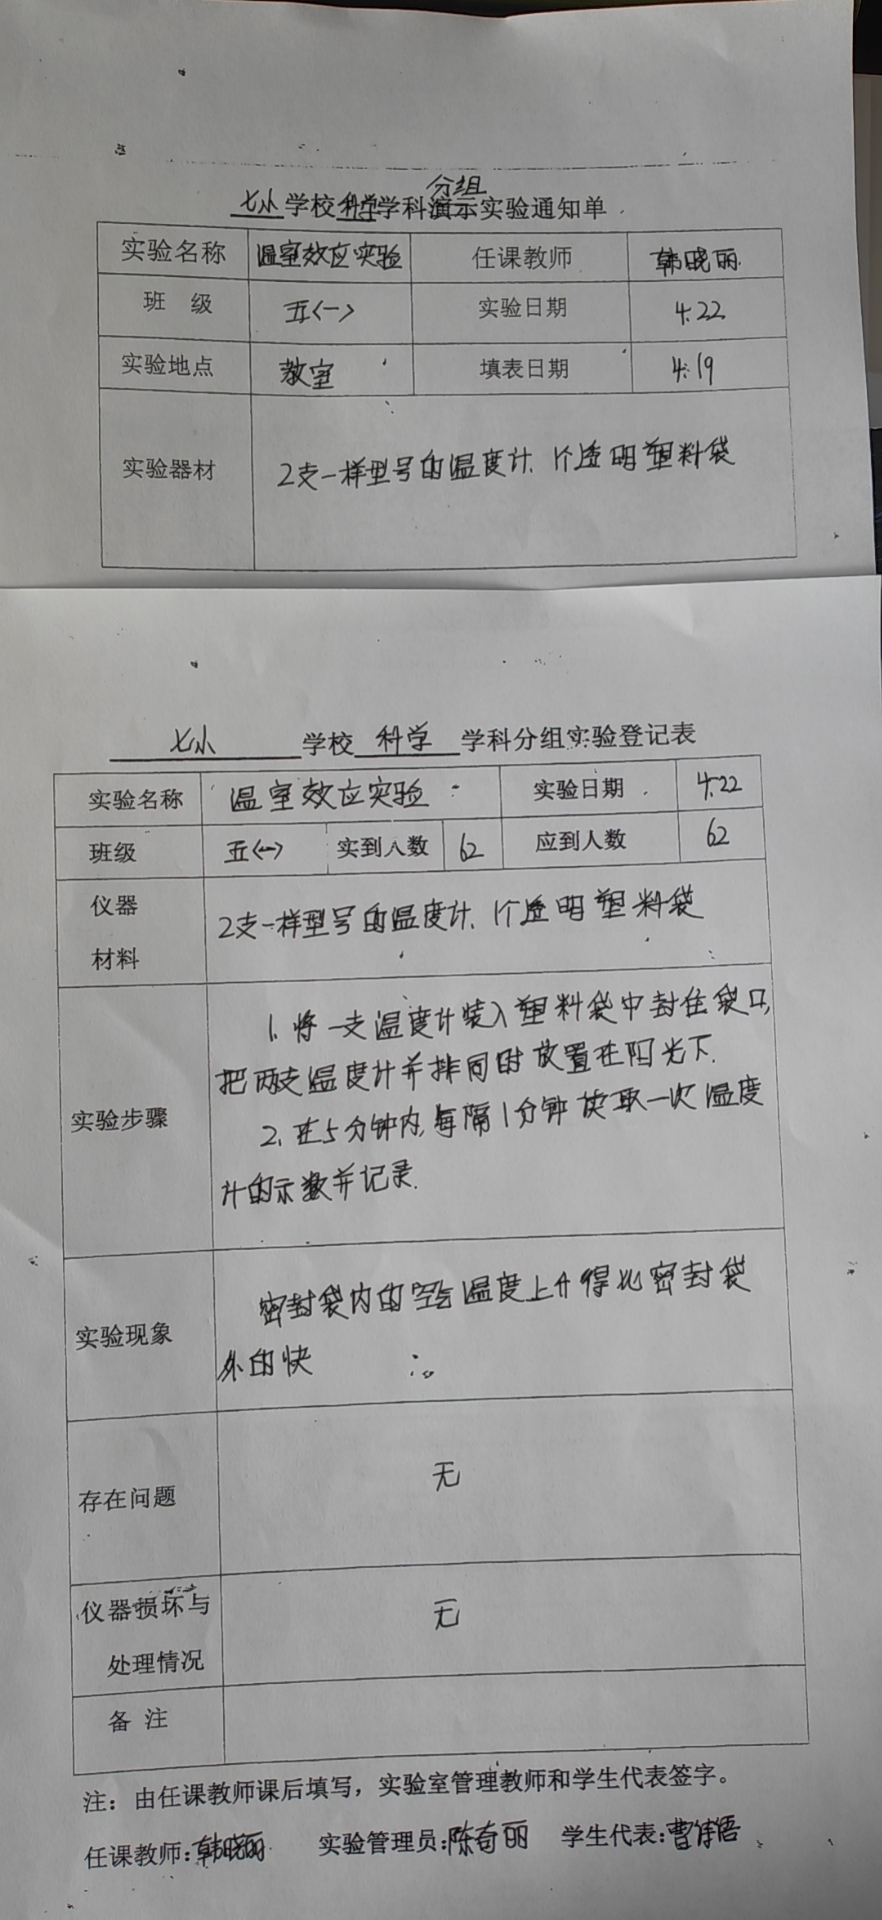 分组
七小学校科学学科演示实验通知单
实验名称 温室效应实验 任课教师 韩晓丽
班 级 五<一> 实验日期 4.22
实验地点 教室 填表日期 4.19
实验器材 2支一样型号的温度计、1个透明塑料袋
七小 学校 科学 学科分组实验登记表
实验名称 温室效应实验 实验日期 4.22
班级 五<一> 实到人数 62 应到人数 62
仪器
2支一样型号的温度计、1个透明塑料袋
材料
1、将一支温度计装入塑料袋中封住袋口,
把两支温度计并排同时放置在阳光下.
实验步骤
2、在5分钟内,每隔1分钟读取一次温度
计的示数并记录.
密封袋内的空气温度上升得比密封袋
实验现象
外的快
存在问题 无
仪器损坏与 无
处理情况
备 注
注：由任课教师课后填写，实验室管理教师和学生代表签字。
任课教师:韩晓丽 实验管理员:陈奇丽 学生代表:曹